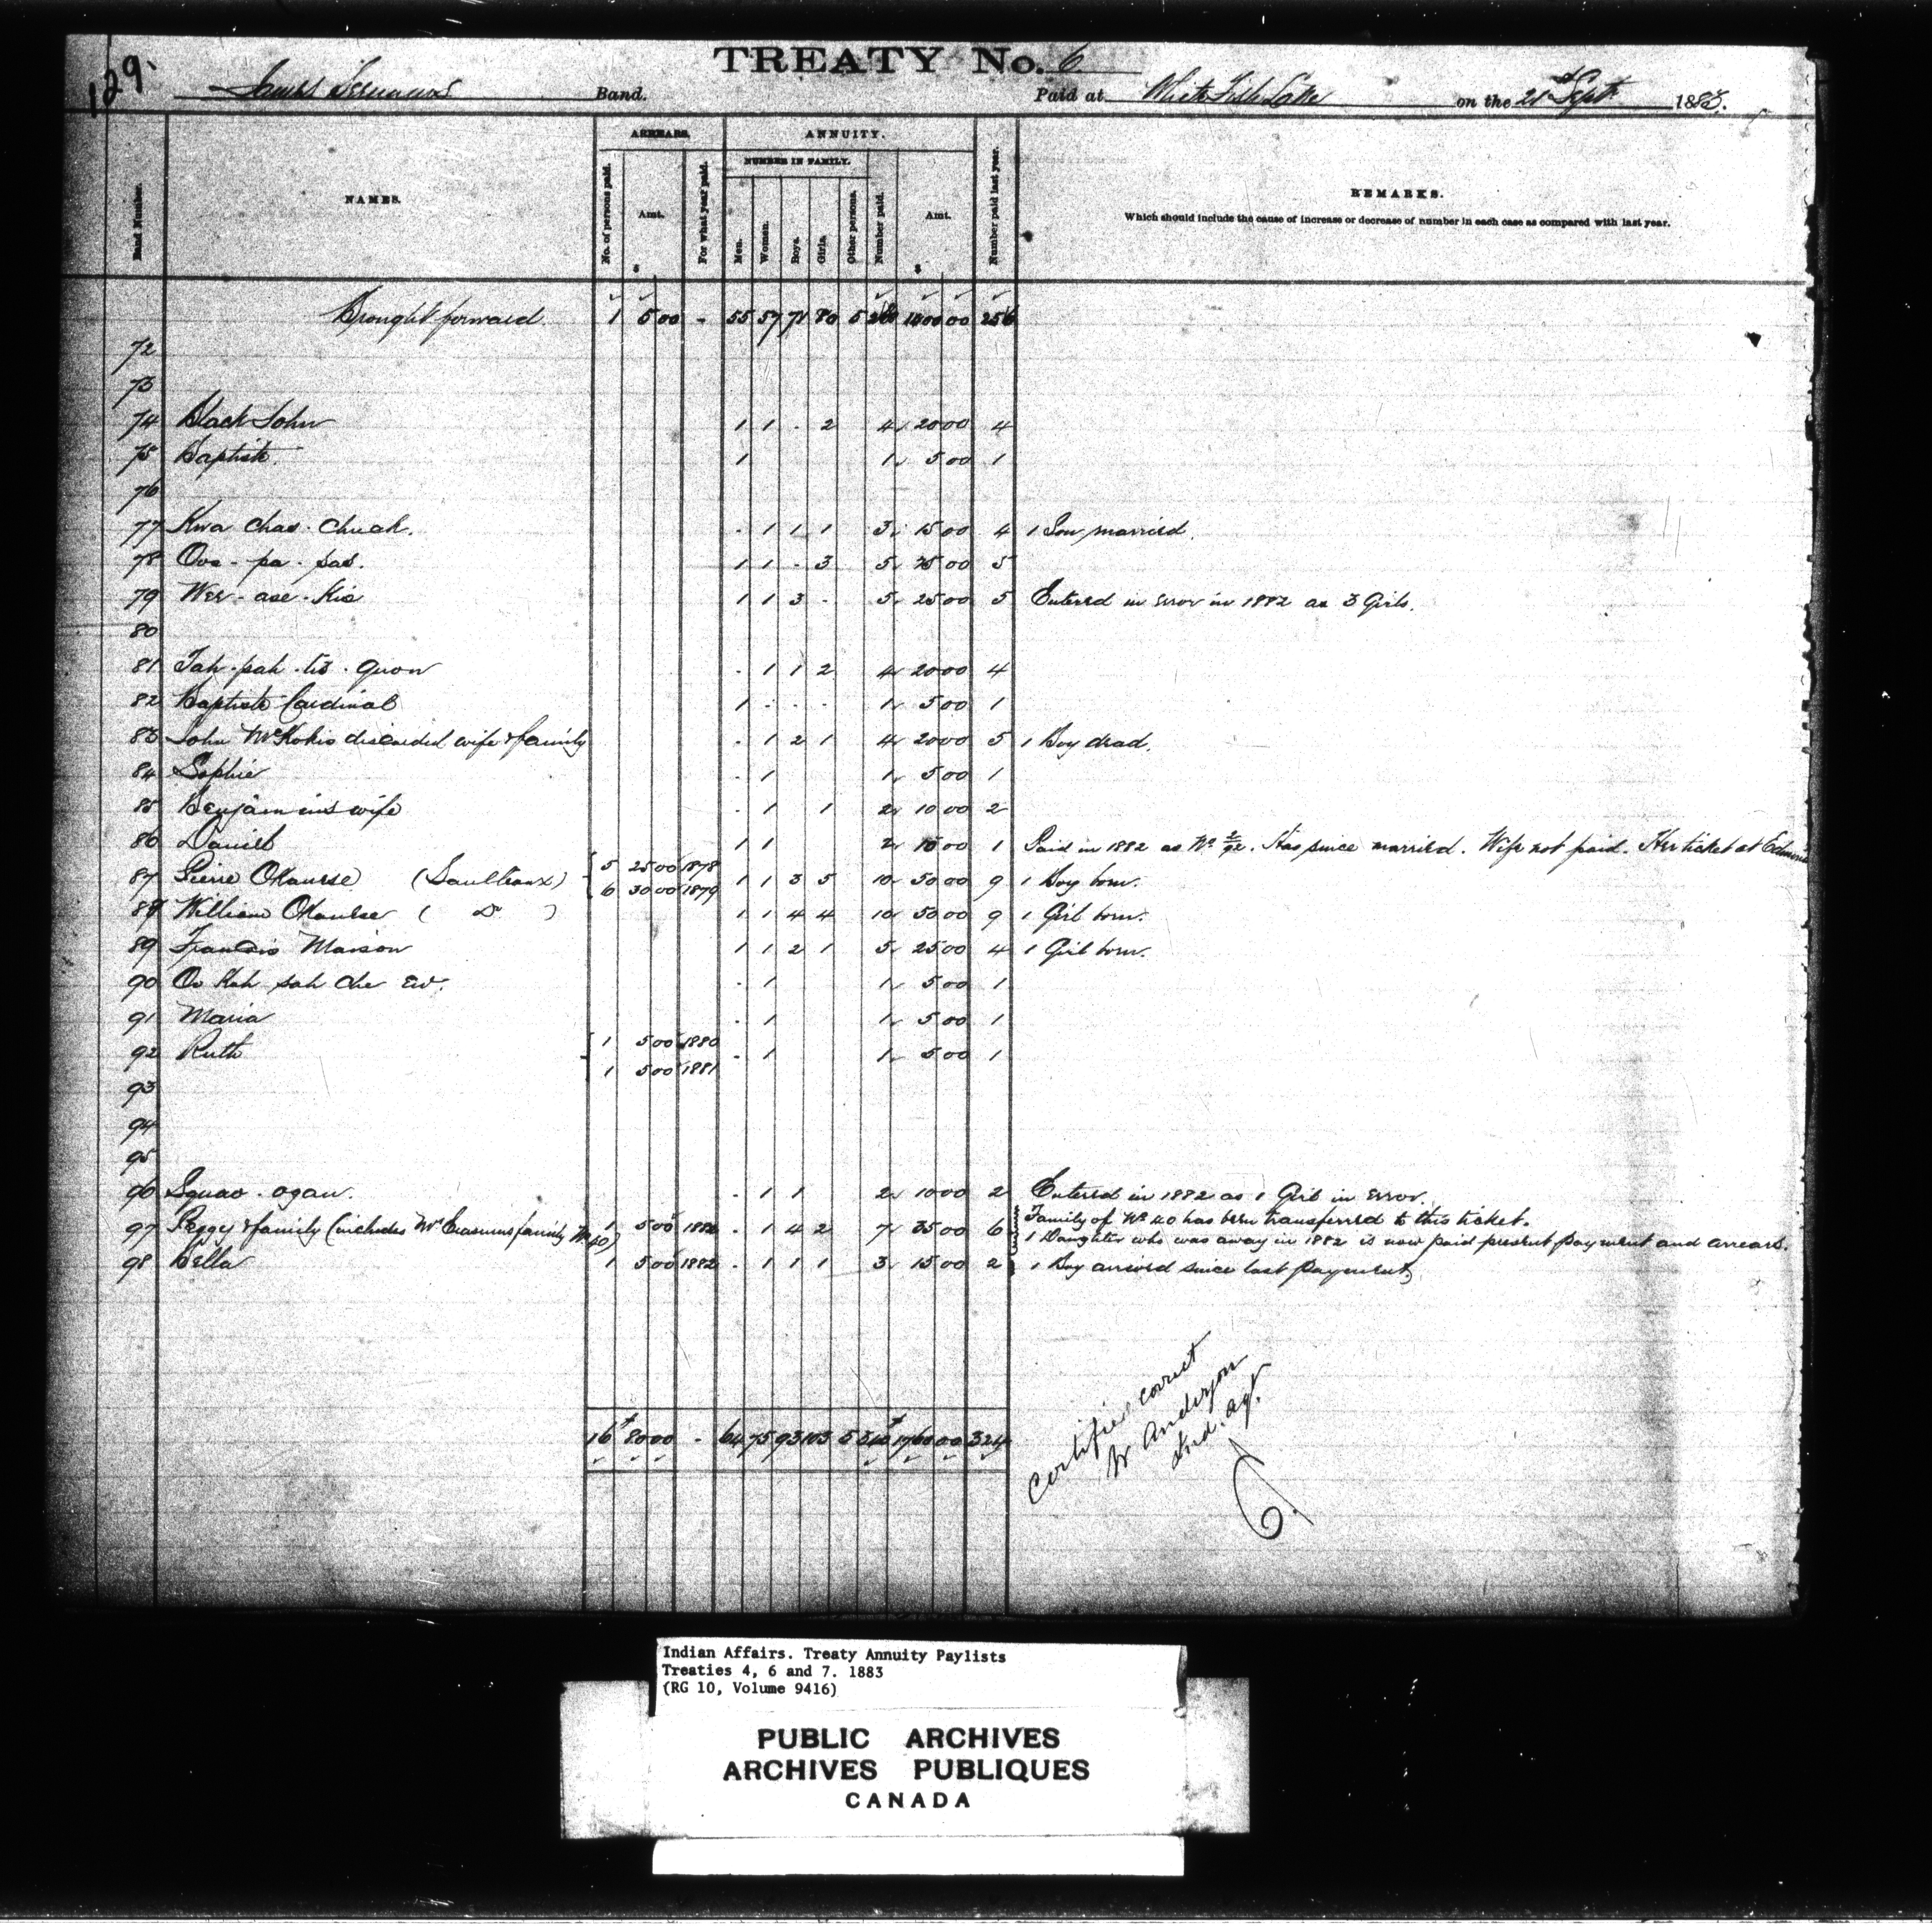 129.
TREATY No. 6
James Seenum's Band. Paid at White Fish Lake on the 21 Sept 1883.
ARREARS. ANNUITY.
NUMBER IN FAMILY.
Band Number. NAMES. No. of persons paid. Amt. For what year paid. Men. Women. Boys. Girls. Other persons. Number paid. Amt. Number paid last year. REMARKS.
Which should include the cause of increase or decrease of number in each case as compared with last year.
$ $
Brought forward 1 5 00 - 55 57 71 80 5 00 00 256
72
73
74 Black John 1 1 - 2 4 20 00 4
75 Baptiste. 1 1 5 00 1
76
77 Kwa chas. Chuah. - 1 1 1 3 15 00 4 1 Son married.
78 Ooo - pa - pas. 1 1 - 3 5 25 00 5
79 Wee - ase - Kis 1 1 3 - 5 25 00 5 Entered in Error in 1882 as 3 Girls.
80
81 Tah - pah - tis - quon - 1 1 2 4 20 00 4
82 Baptiste Cardinal 1 - - - 1 5 00 1
83 John McKokis discarded wife & family - 1 2 1 4 20 00 5 1 Boy dead.
84 Sophie - 1 1 5 00 1
85 Benjamins wife - 1 1 2 10 00 2
86 Daniel 1 1 2 10 00 1 Paid in 1882 as No. Has since married. Wife not paid. Her ticket at
5 25 00 1878
87 Pierre Okaurse (Saulteaux) 6 30 00 1879 1 1 3 5 10 50 00 9 1 Boy born.
88 William Okaulse ( Do ) 1 1 4 4 10 50 00 9 1 Girl born.
89 Francis Maison 1 1 2 1 5 25 00 4 1 Girl born.
90 Oo Kah pah che ew. - 1 1 5 00 1
91 Maria - 1 1 5 00 1
1 5 00 1880
92 Ruth - 1 1 5 00 1
1 5 00 1881
93
94
95
96 Squao - ogan. - 1 1 2 10 00 2 Entered in 1882 as 1 Girl in Error.
Family of No 40 has been transferred to this ticket.
97 Peggy & family (includes Mrs Erasmus family No 40) 1 5 00 1882 - 1 4 2 7 35 00 6 1 Daughter who was away in 1882 is now paid present payment and arrears.
98 Bella 1 5 00 1882 - 1 1 1 3 15 00 2 1 Boy arrived since last payment
16 80 00 - 64 75 93 103 5 340 1700 00 324
Certified correct
W Anderson
Ind. Agt.
Indian Affairs. Treaty Annuity Paylists
Treaties 4, 6 and 7. 1883
(RG 10, Volume 9416)
PUBLIC ARCHIVES
ARCHIVES PUBLIQUES
CANADA